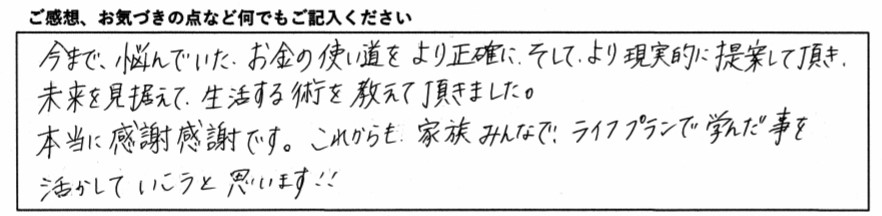 ご感想、お気づきの点など何でもご記入ください
今まで、悩んでいた、お金の使い道をより正確に、そして、より現実的に提案して頂き、
未来を見据えて、生活する術を教えて頂きました。
本当に感謝感謝です。これからも、家族みんなで、ライフプランで学んだ事を
活かしていこうと思います!!